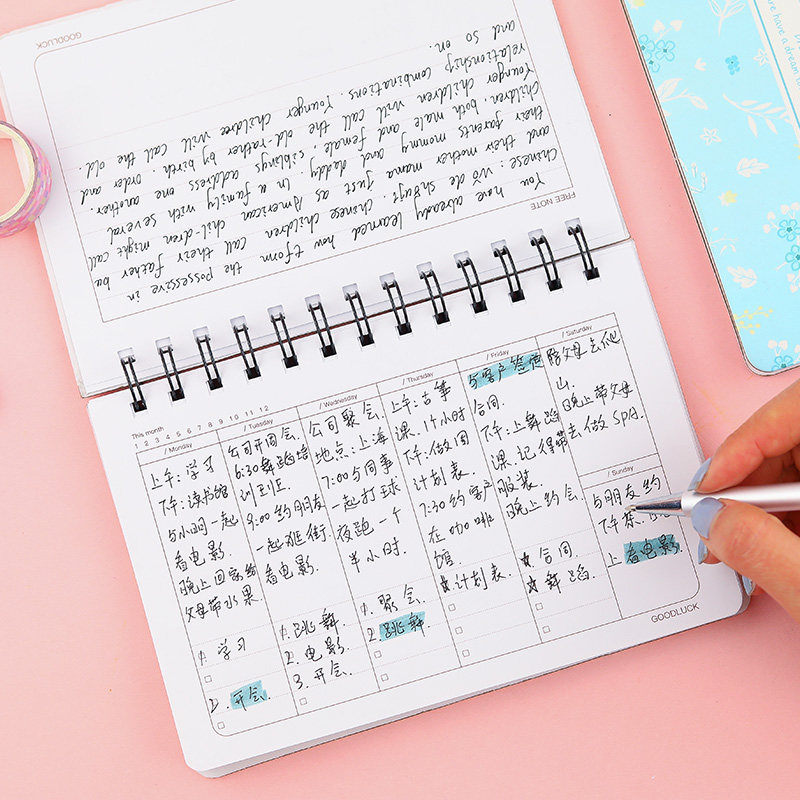 GOODLUCK
FREE NOTE
You have already learned how tform the Possessive in
Chinese: Wǒ de Chinese children call their father ba
and their mother mama just as American children might call
their parents mommy and daddy. In a family with several
children, both male and female, siblings address one another.
Younger children will call the old rather by birth order and
relationship combinations. Younger childree will call the old.
and so on.
This month
1 2 3 4 5 6 7 8 9 10 11 12
/ Monday
上午:学习
下午:读书馆
与小同一起
看电影
晚上回家给
父母带水果
1. 学习
2. 开会.
/ Tuesday
公司开周会.
6:30舞蹈培
训
8:00约朋友
一起逛街
看电影.
1. 跳舞.
2. 电影.
3. 开会.
/ Wednesday
公司聚会.
地点:上海
7:00与同事
一起打球
夜跑一个
半小时.
1. 聚会.
2. 跳舞
/ Thursday
上午:古筝
课.1个小时
下午:做周
计划表.
7:30约客户
在咖啡
馆.
☆计划表.
/ Friday
与客户签应
合同.
下午:上舞蹈
课.记得带
服装.
晚上约会.
☆合同.
☆舞蹈.
/ Saturday
陪父母去爬
山.
晚上带父母
去做SPA.
/ Sunday
与朋友约
下午茶.
上看电影.
GOODLUCK